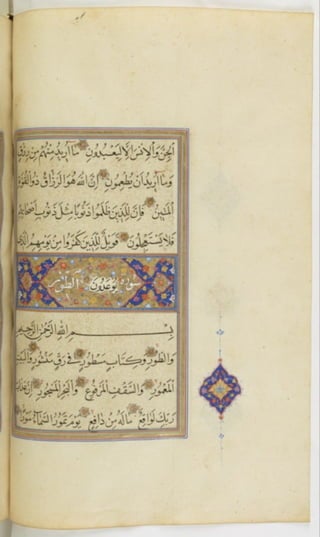 اَلْجِنَّ وَالْاِنْسَ اِلَّا لِيَعْبُدُونِ مَا اُرِيدُ مِنْهُمْ مِنْ رِزْقٍ
وَمَا اُرِيدُ اَنْ يُطْعِمُونِ اِنَّ اللهَ هُوَ الرَّزَّاقُ ذُو الْقُوَّةِ
الْمَتِينُ فَاِنَّ لِلَّذِينَ ظَلَمُوا ذَنُوبًا مِثْلَ ذَنُوبِ اَصْحَابِهِمْ
فَلَا يَسْتَعْجِلُونِ فَوَيْلٌ لِلَّذِينَ كَفَرُوا مِنْ يَوْمِهِمُ الَّذِي
سورة يُوعَدُونَ الطور
بِسْمِ اللهِ الرَّحْمٰنِ الرَّحِيمِ
وَالطُّورِ وَكِتَابٍ مَسْطُورٍ فِي رَقٍّ مَنْشُورٍ وَالْبَيْتِ
الْمَعْمُورِ وَالسَّقْفِ الْمَرْفُوعِ وَالْبَحْرِ الْمَسْجُورِ اِنَّ عَذَابَ
رَبِّكَ لَوَاقِعٌ مَا لَهُ مِنْ دَافِعٍ يَوْمَ تَمُورُ السَّمَاءُ مَوْرًا